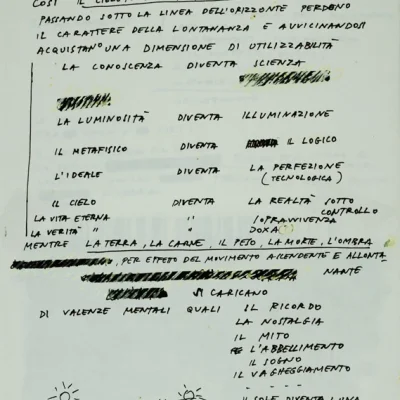 COSÌ IL CIELO,
PASSANDO SOTTO LA LINEA DELL'ORIZZONTE PERDONO
IL CARATTERE DELLA LONTANANZA E AVVICINANDOSI
ACQUISTAN'UNA DIMENSIONE DI UTILIZZABILITÀ
LA CONOSCENZA DIVENTA SCIENZA
LA LUMINOSITÀ DIVENTA ILLUMINAZIONE
IL METAFISICO DIVENTA IL LOGICO
L'IDEALE DIVENTA LA PERFEZIONE
(TECNOLOGICA)
IL CIELO DIVENTA LA REALTÀ SOTTO
CONTROLLO
LA VITA ETERNA " SOPRAVVIVENZA
LA VERITÀ " " DOXA
MENTRE LA TERRA, LA CARNE, IL PESO, LA MORTE, L'OMBRA
, PER EFFETO DEL MOVIMENTO ASCENDENTE E ALLONTA
NANTE
SI CARICANO
DI VALENZE MENTALI QUALI IL RICORDO
LA NOSTALGIA
IL MITO
L'ABBELLIMENTO
IL SOGNO
IL VAGHEGGIAMENTO
IL SOLE DIVENTA LUNA